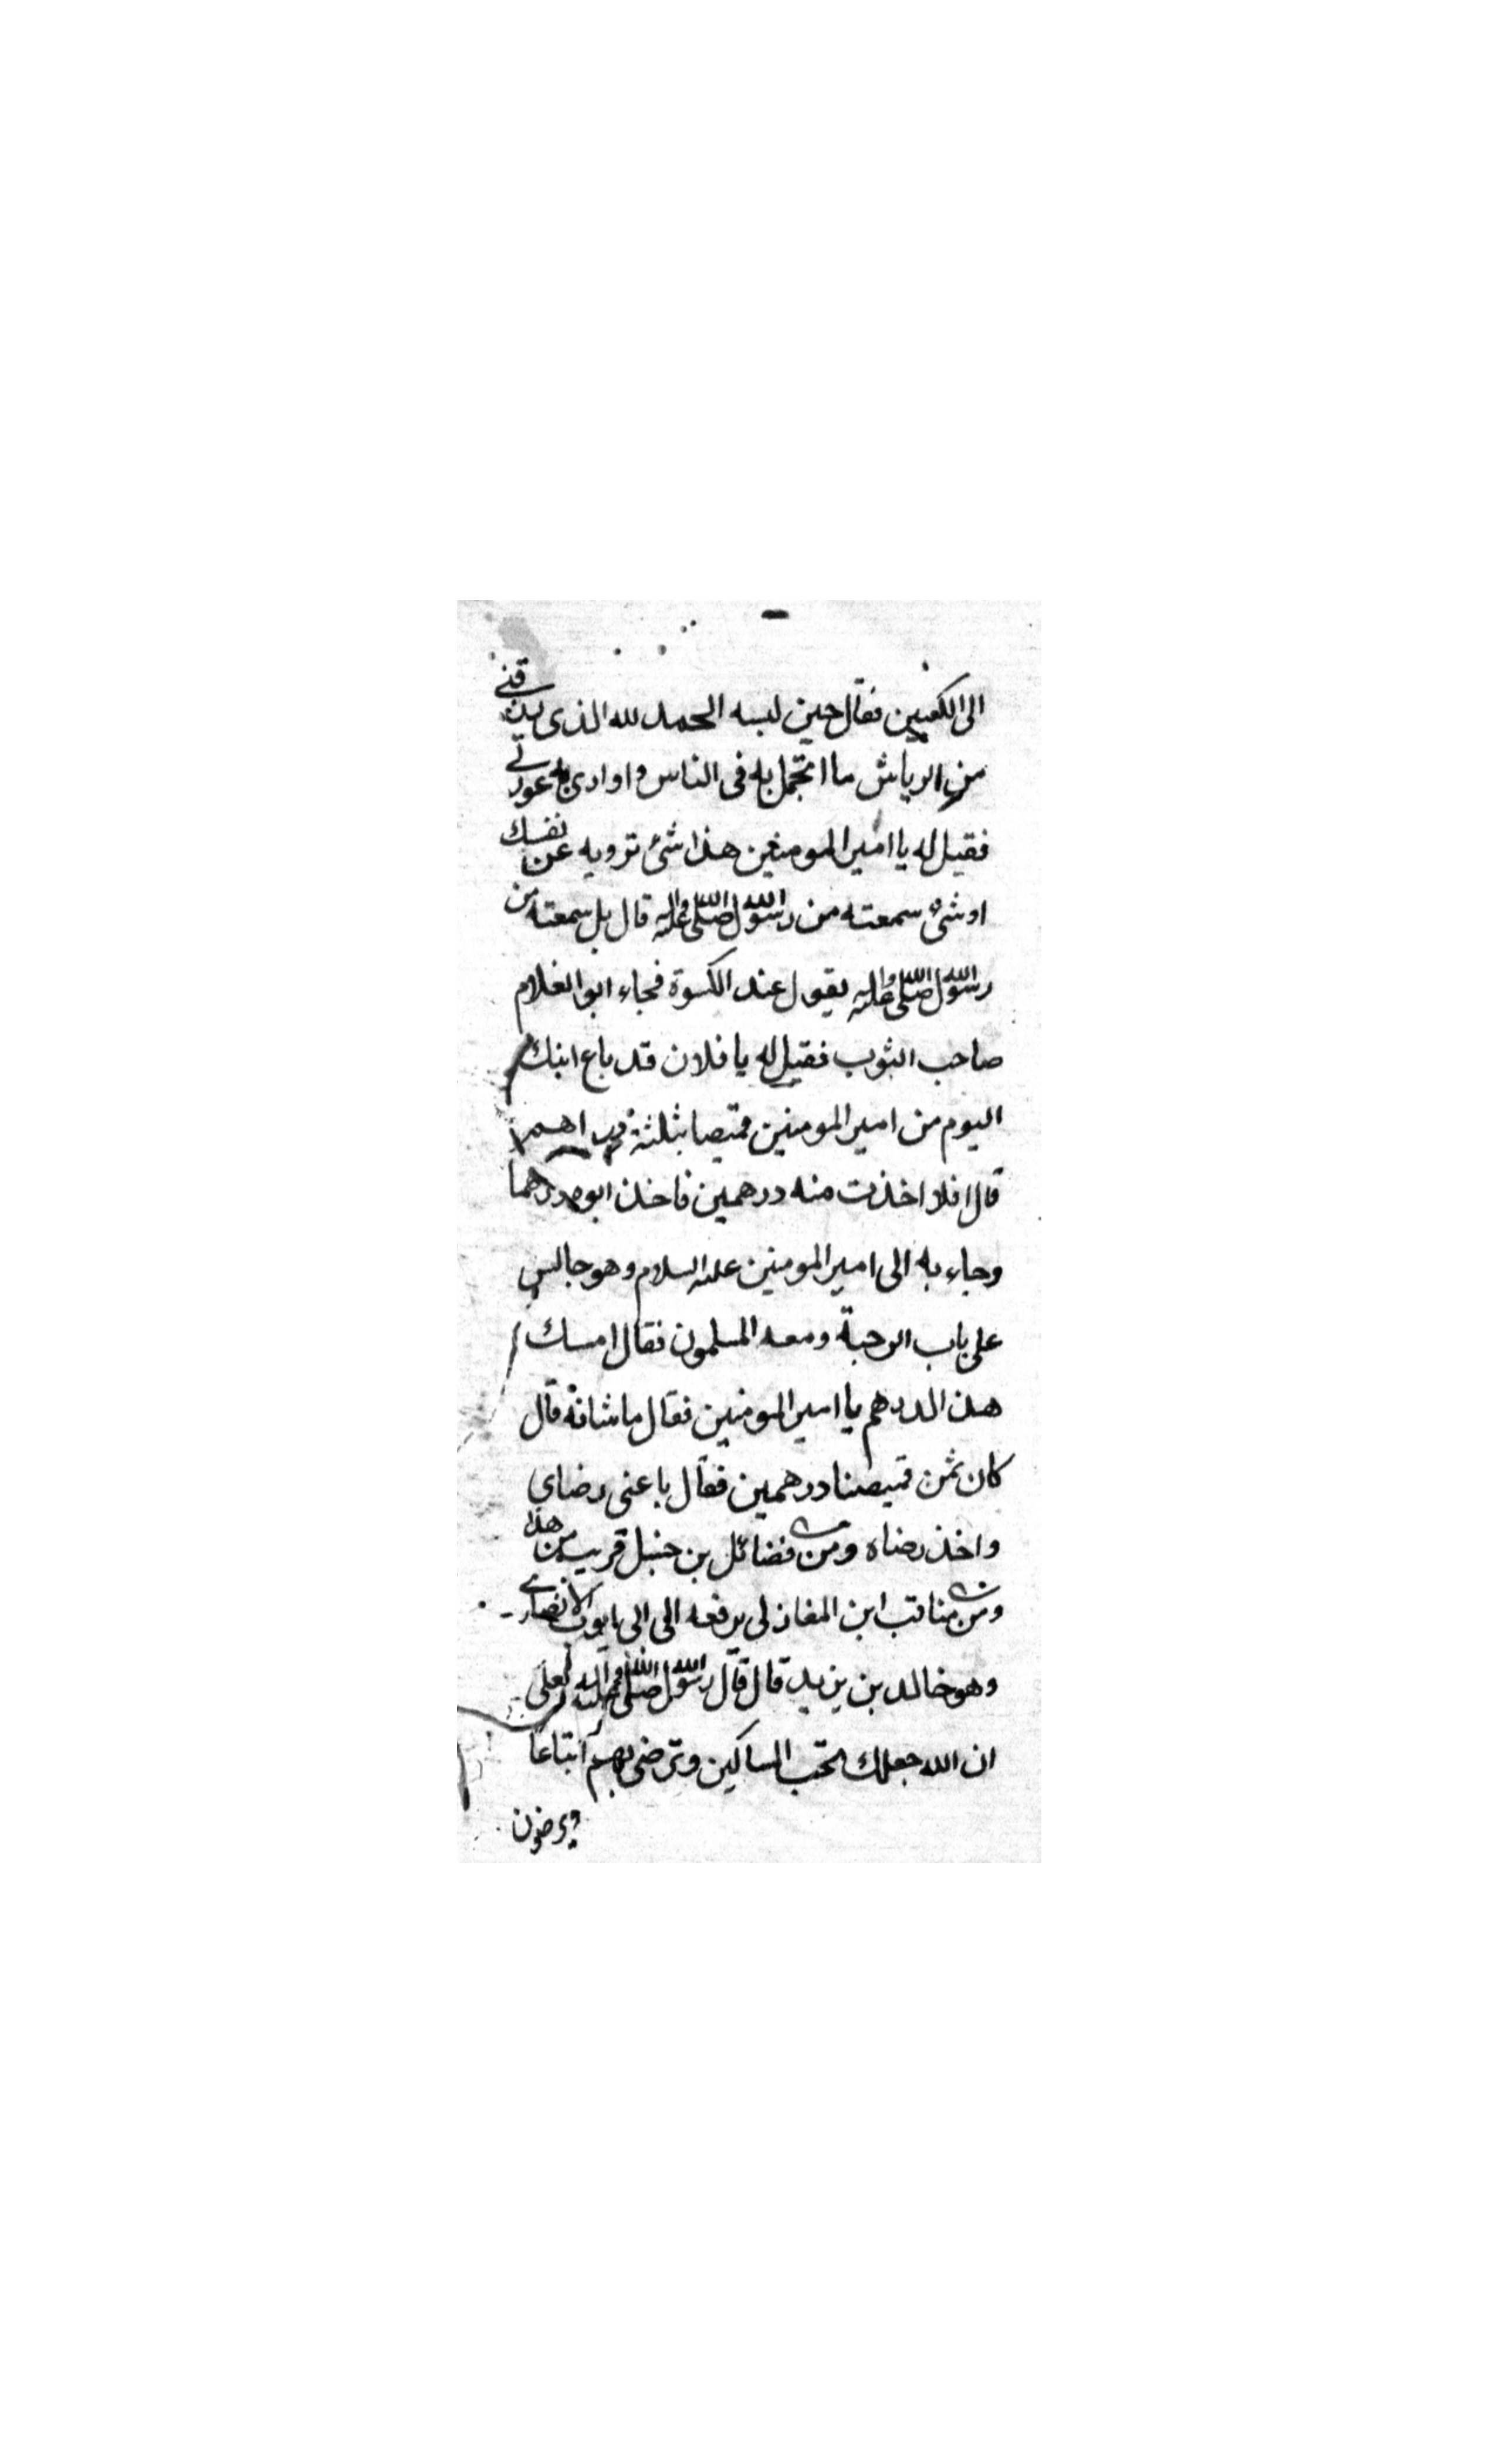 الى الكعبين فقال حين لبسه الحمد لله الذى رزقنى
من الرياش ما اتجمل به فى الناس و اوارى به عورتى
فقيل له يا امير المومنين هذا شئ ترويه عن نفسك
او شئ سمعته من رسول الله صلى الله عليه واله قال بل سمعته من
رسول الله صلى الله عليه واله يقول عند الكسوة فجاء ابو الغلام
صاحب الثوب فقيل له يا فلان قد باع ابنك
اليوم من امير المومنين قميصا بثلثة دراهم
قال افلا اخذت منه درهمين فاخذ ابوه درهما
وجاء به الى امير المومنين عليه السلام وهو جالس
على باب الرحبة ومعه المسلمون فقال امسك
هذا الدرهم يا امير المومنين فقال ما شانه قال
كان ثمن قميصنا درهمين فقال باعنى رضاى
واخذ رضاه ومن فضائل بن حنبل قريب من هذا
ومن مناقب ابن المغازلى يرفعه الى ابى ايوب الانصارى
وهو خالد بن يزيد قال قال رسول الله صلى الله عليه واله لعلى
ان الله جعلك تحب المساكين وترضى بهم اتباعا
ويرضون